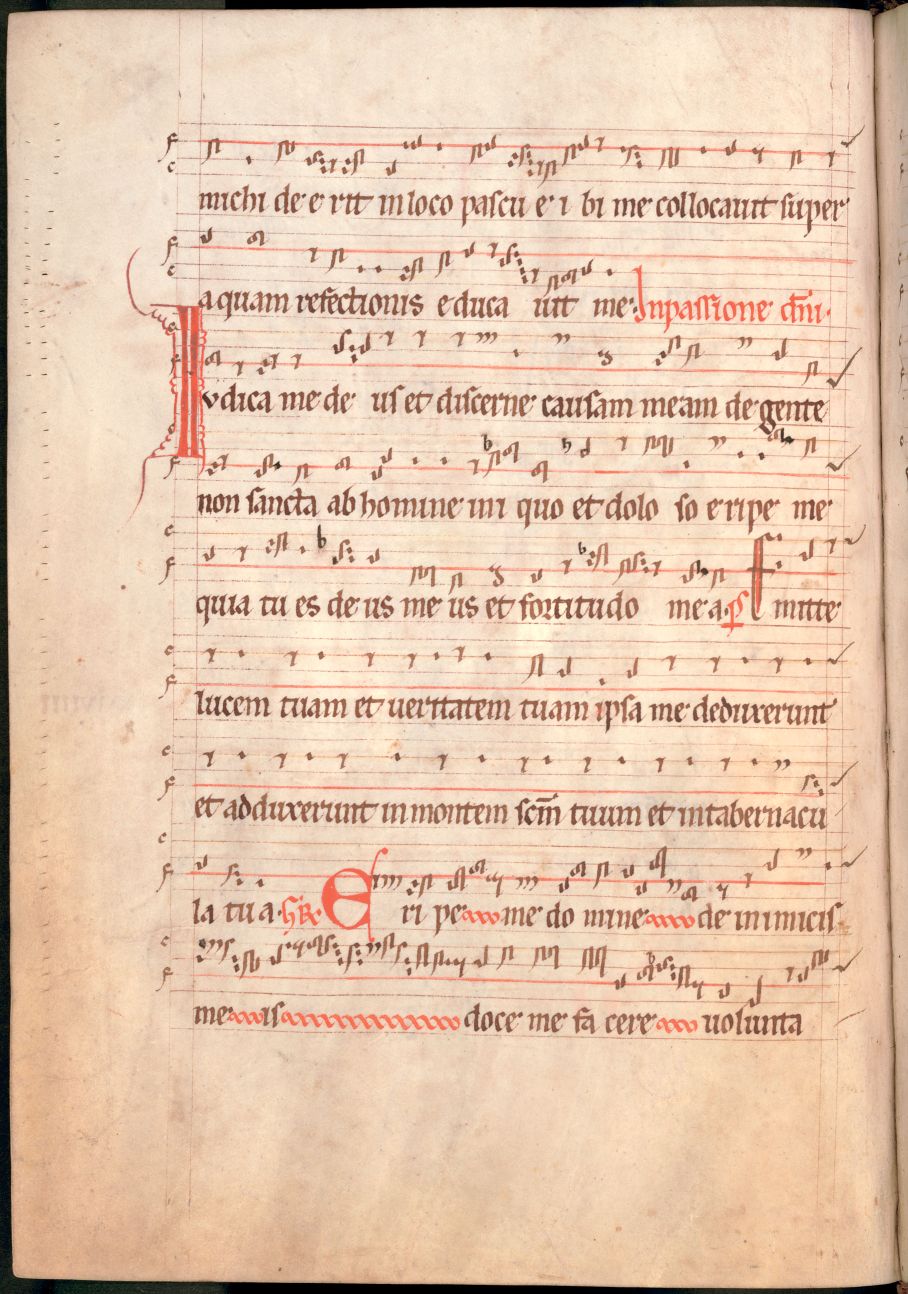 michi de e rit in loco pascu e i bi me collocauit super
aquam refectionis e duca uit me. In passione dm̄i.
Ivdica me de us et discerne causam meam de gente
non sancta ab homine ini quo et dolo so e ripe me
quia tu es de us me us et fortitudo me a. ps E mitte
lucem tuam et ueritatem tuam ipsa me deduxerunt
et adduxerunt in montem scm̄ tuum et in tabernacu
la tu a. GR. Eri pe me do mine de inimicis
me is doce me fa cere uolunta